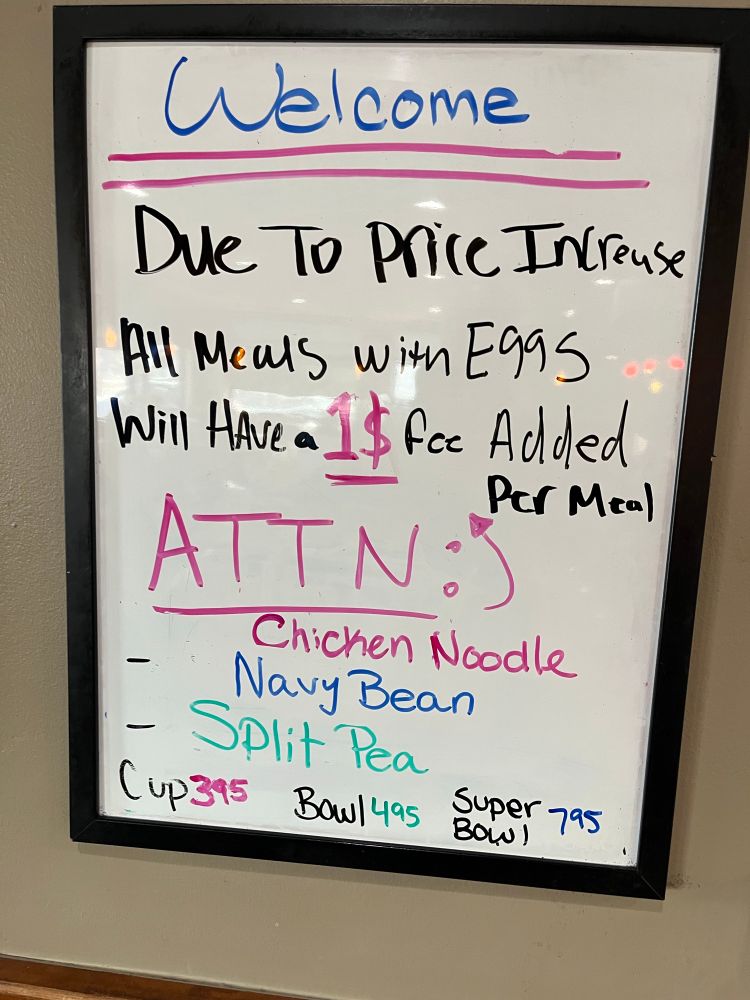 Welcome
Due To Price Increase
All Meals with Eggs
Will Have a 1$ fee Added
Per Meal
ATTN:
Chicken Noodle
- Navy Bean
- Split Pea
Cup 395 Bowl 495 Super Bowl 795